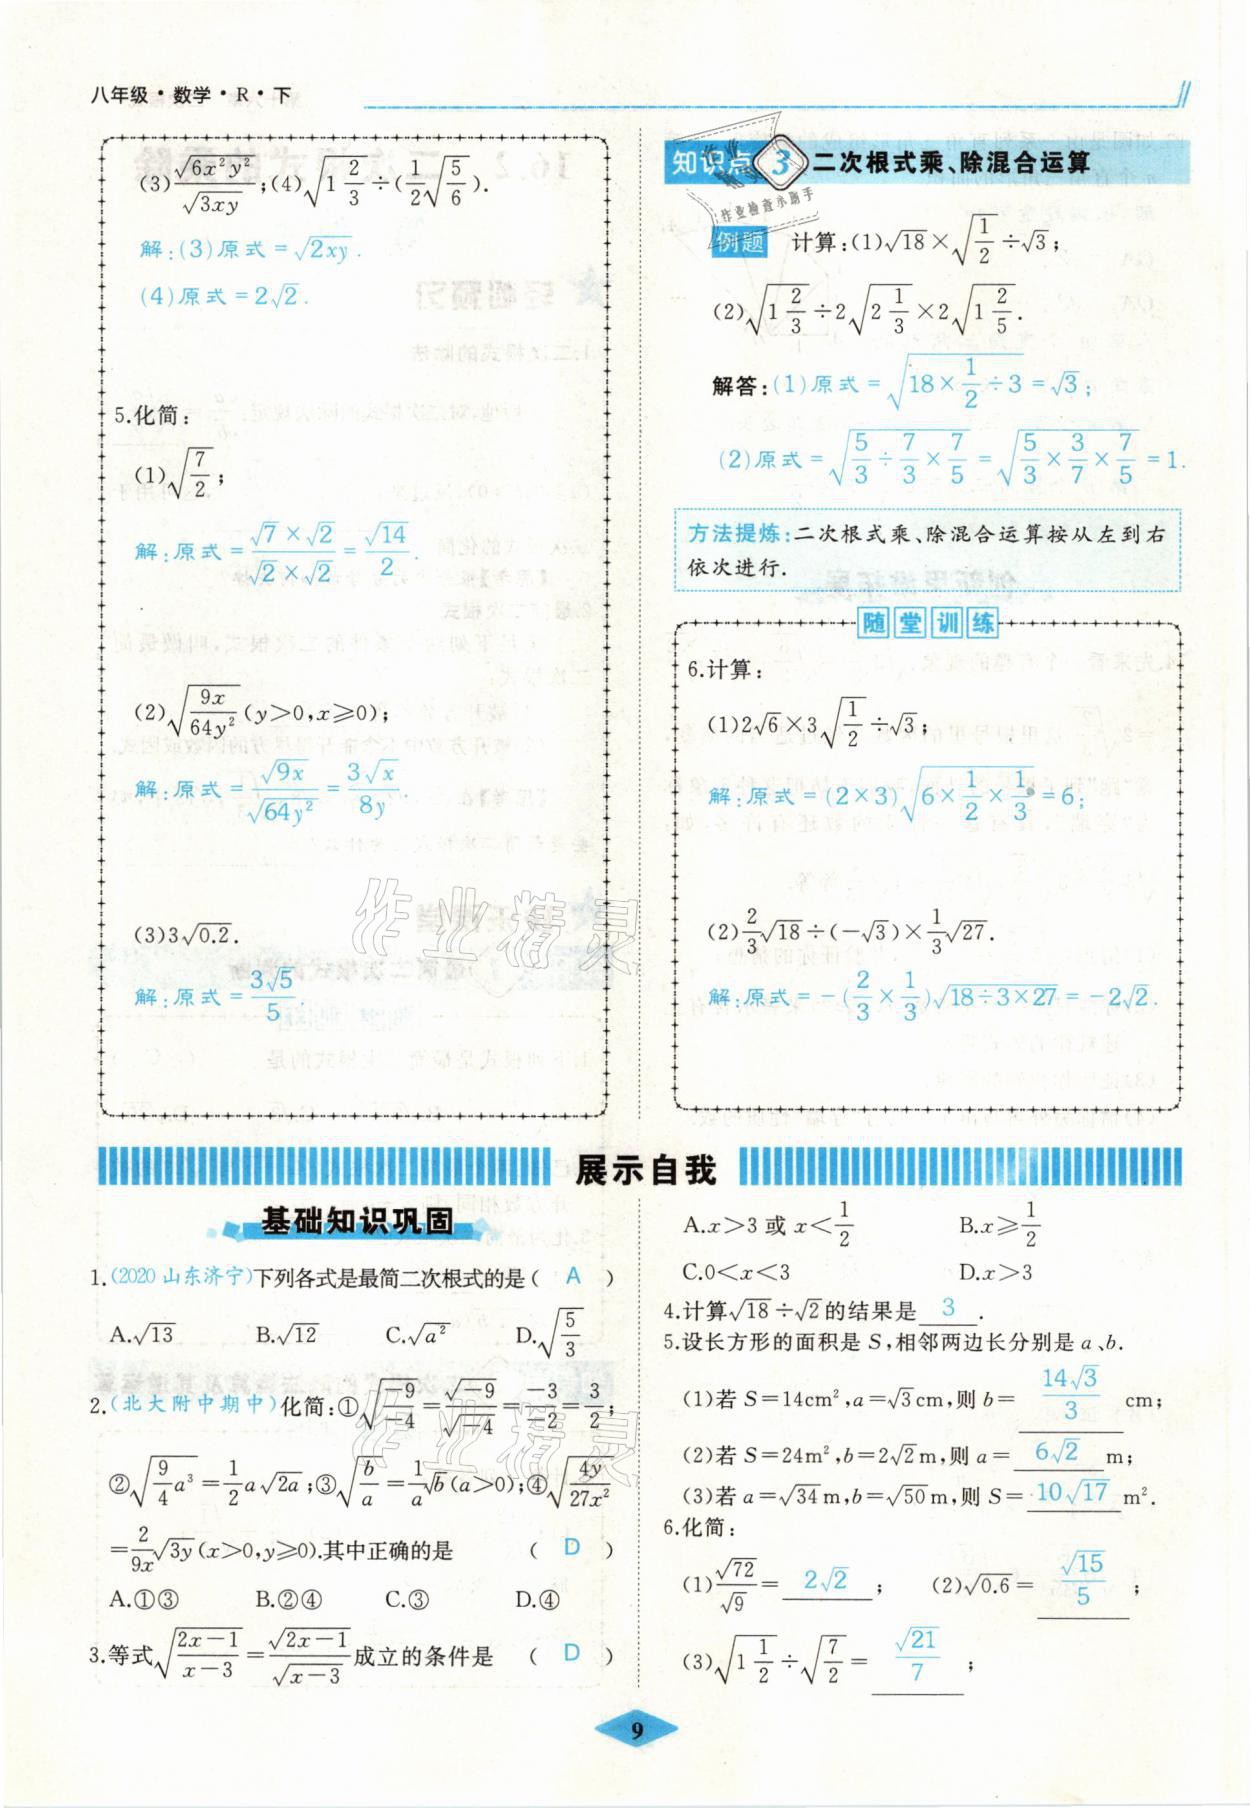 八年级·数学·R·下
(3)√(6x²y²)/√(3xy);(4)√(1 2/3)÷(1/2√(5/6)).
解:(3)原式=√(2xy).
(4)原式=2√2.
5.化简:
(1)√(7/2);
解:原式=(√7×√2)/(√2×√2)=√14/2.
(2)√(9x/64y²)(y>0,x≥0);
解:原式=√(9x)/√(64y²)=3√x/8y.
(3)3√0.2.
解:原式=3√5/5.
知识点 3 二次根式乘、除混合运算
例题 计算:(1)√18×√(1/2)÷√3;
(2)√(1 2/3)÷2√(2 1/3)×2√(1 2/5).
解答:(1)原式=√(18×1/2÷3)=√3;
(2)原式=√(5/3÷7/3×7/5)=√(5/3×3/7×7/5)=1.
方法提炼:二次根式乘、除混合运算按从左到右
依次进行.
随堂训练
6.计算:
(1)2√6×3√(1/2)÷√3;
解:原式=(2×3)√(6×1/2×1/3)=6;
(2)2/3√18÷(-√3)×1/3√27.
解:原式=-(2/3×1/3)√(18÷3×27)=-2√2.
展示自我
基础知识巩固
1.(2020山东济宁)下列各式是最简二次根式的是( A )
A.√13 B.√12 C.√a² D.√(5/3)
2.(北大附中期中)化简:①√(-9/-4)=√-9/√-4=-3/-2=3/2;
②√(9/4 a³)=1/2 a√(2a);③√(b/a)=1/a√b(a>0);④√(4y/27x²)
=2/9x√(3y)(x>0,y≥0).其中正确的是 ( D )
A.①③ B.②④ C.③ D.④
3.等式√((2x-1)/(x-3))=√(2x-1)/√(x-3)成立的条件是 ( D )
A.x>3或x<1/2 B.x≥1/2
C.0<x<3 D.x>3
4.计算√18÷√2的结果是 3 .
5.设长方形的面积是S,相邻两边长分别是a、b.
(1)若S=14cm²,a=√3cm,则b= 14√3/3 cm;
(2)若S=24m²,b=2√2m,则a= 6√2 m;
(3)若a=√34m,b=√50m,则S= 10√17 m².
6.化简:
(1)√72/√9= 2√2 ; (2)√0.6= √15/5 ;
(3)√(1 1/2)÷√(7/2)= √21/7 ;
9
作业精灵
作业精灵
作业检查小助手